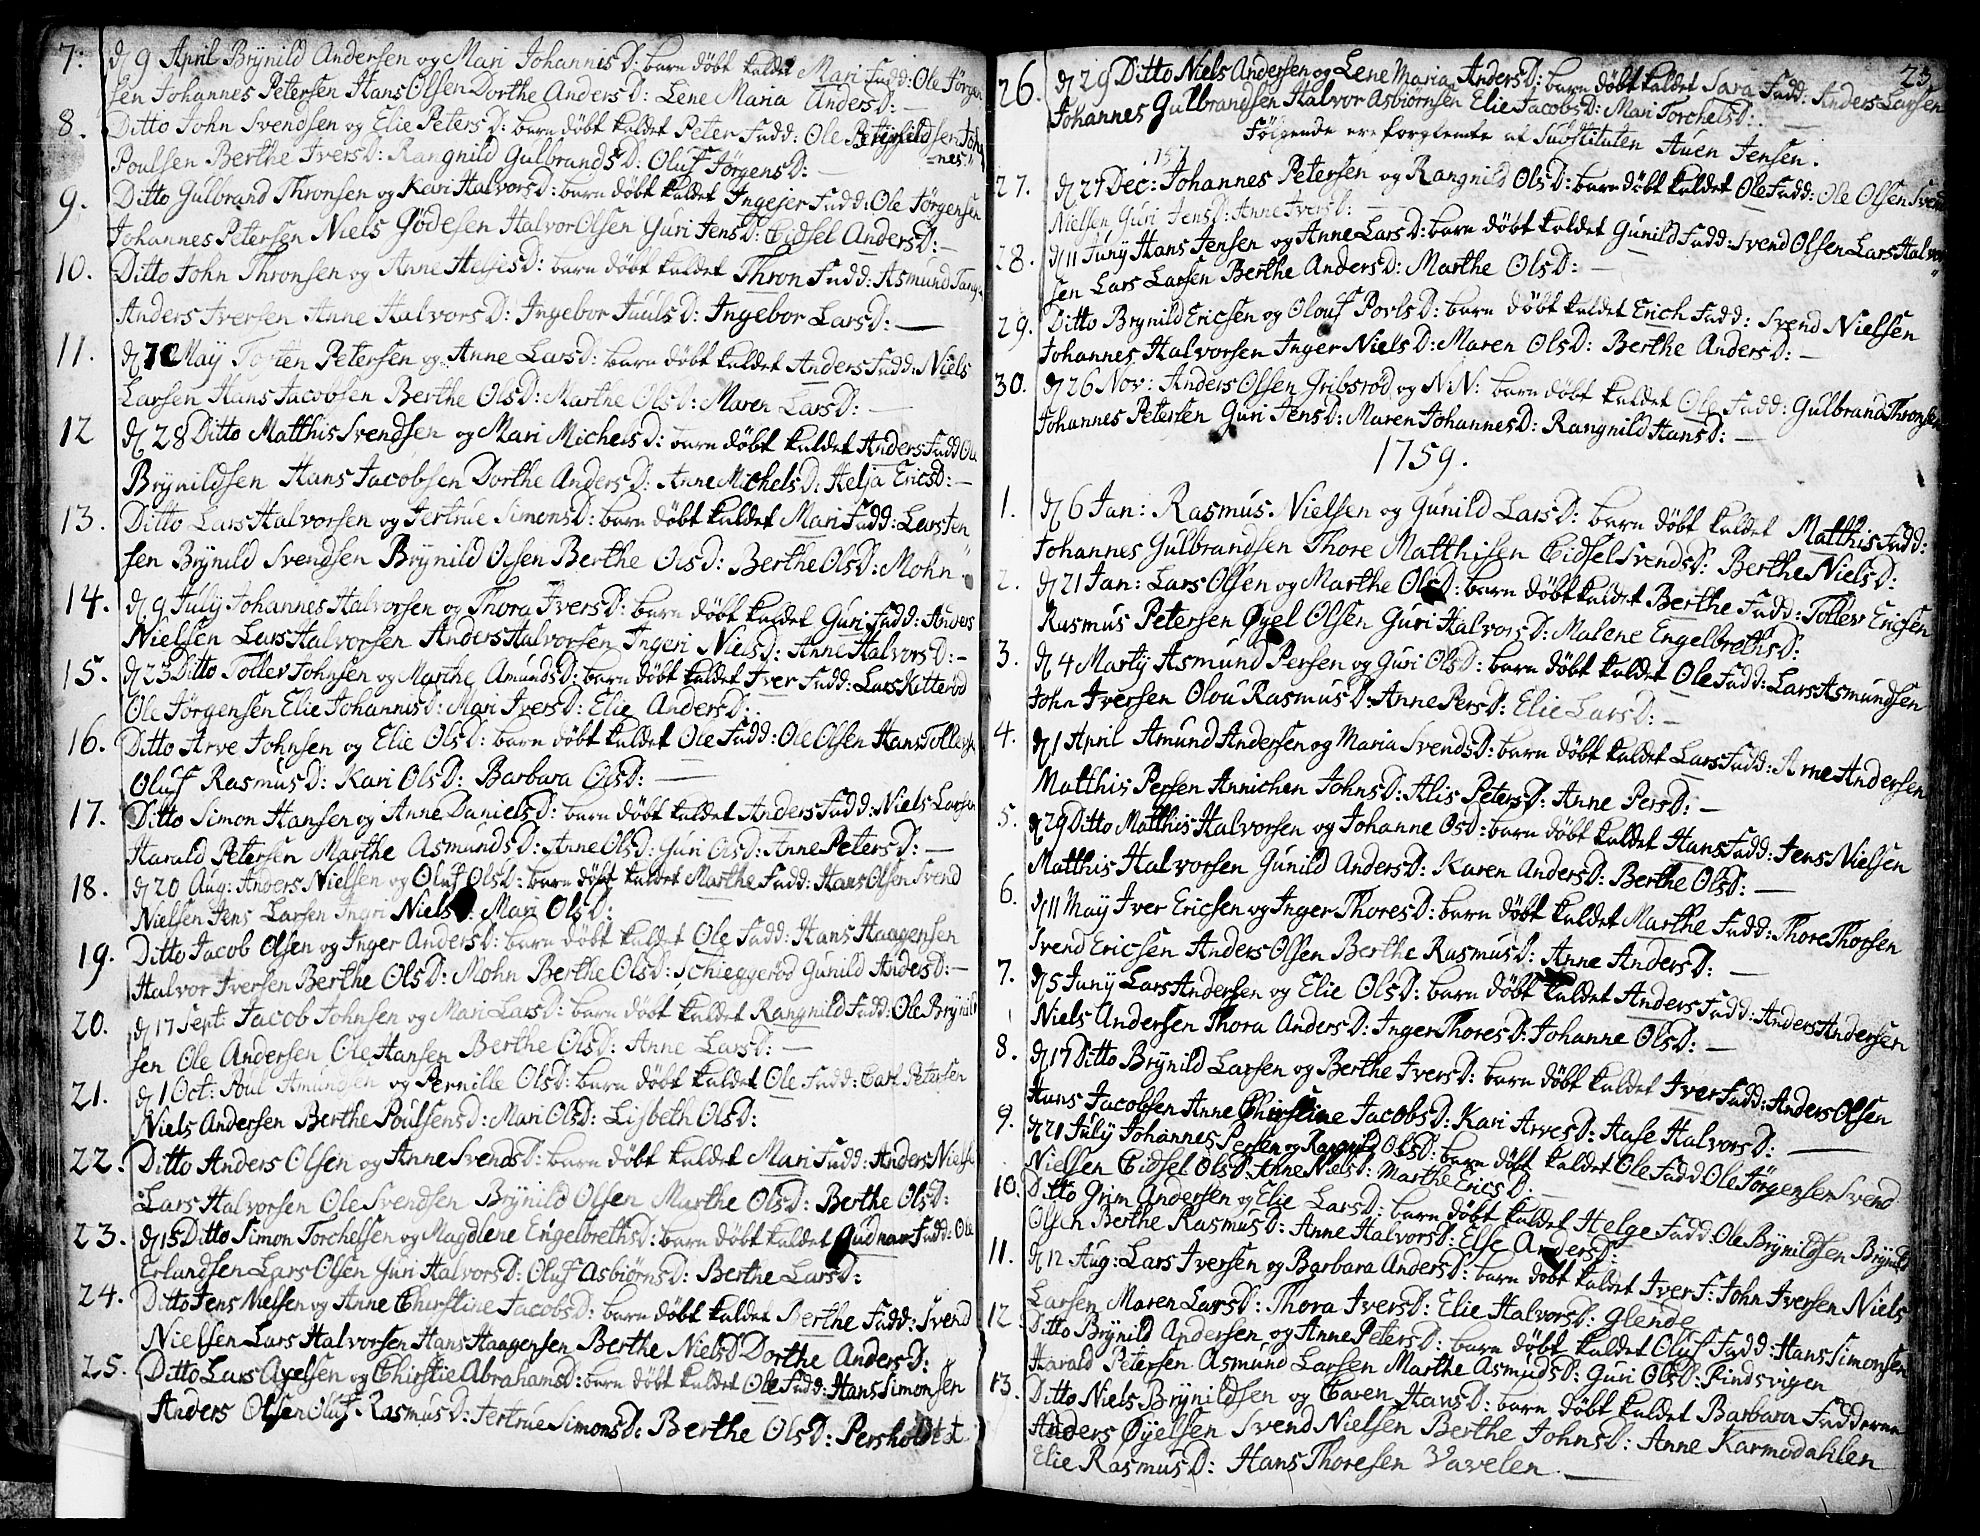 7. d 9 April Brÿnild Andersen og Mari JohannisD: barn döbt kaldet Mari Fadd: Ole Jörgen
sen Johannes Petersen Hans Olsen Dorthe AndersD: Lene Maria AndersD: —
8. Ditto John Svendsen og Elie PetersD: barn döbt kaldet Peter Fadd: Ole Johan
Poulsen Berthe IversD: Rangnild GulbrandsD: Oluf JörgensD: —
9. Ditto Gulbrand Thronsen og Kari HalvorsD: barn döbt kaldet Ingejer Fadd: Ole Jörgensen
Johannes Petersen Niels Gödesen Halvor Olsen Guri JensD: Eidsel AndersD: —
10. Ditto John Thronsen og Anne HelgisD: barn döbt kaldet Thron Fadd: Asmund Tang.
Anders Iversen Anne HalvorsD: Ingebor JuulsD: Ingebor LarsD: —
11. d 10 Maÿ Torsten Petersen og Anne LarsD: barn döbt kaldet Anders Fadd: Niels
Larsen Hans Jacobsen Berthe OlsD: Marthe OlsD: Maren LarsD: —
12 d 28 Ditto Matthis Svendsen og Mari MichelsD: barn döbt kaldet Anders Fadd Ole
Brÿnildsen Hans Jacobsen Dorthe AndersD: Anne MichelsD: Helja EricsD: —
13. Ditto Lars Halvorsen og Jertrue SimonsD: barn döbt kaldet Mari Fadd: Lars Jen
sen Brÿnild Svendsen Brÿnild Olsen Berthe OlsD: Berthe OlsD: Mohn
14. d 9 Julÿ Johannes Halvorsen og Thora IversD: barn döbt kaldet Guri Fadd: Anders
Nielsen Lars Halvorsen Anders Halvorsen Ingeri NielsD: Anne HalvorsD: —
15. d 23 Ditto Tollev Johnsen og Marthe AmundsD: barn döbt kaldet Iver Fadd: Lars Ketteröd
Ole Jörgensen Elie JohannisD: Mari IversD: Elie AndersD:
16. Ditto Arve Johnsen og Elie OlsD: barn döbt kaldet Ole Fadd: Ole Olsen Hans Tollevsen
Oluf RasmusD: Kari OlsD: Barbara OlsD: —
17. Ditto Simon Hansen og Anne DanielsD: barn döbt kaldet Anders Fadd: Niels Larsen
Harald Petersen Marthe AsmundsD: Anne OlsD: Guri OlsD: Anne PetersD: —
18. d 20 Aug: Anders Nielsen og Oluf OlsD: barn döbt kaldet Marthe Fadd: Hans Olsen Svend
Nielsen Jens Larsen Ingri NielsD: Mari OlsD:
19. Ditto Jacob Olsen og Inger AndersD: barn döbt kaldet Ole Fadd: Hans Haagensen
Halvor Iversen Berthe OlsD: Mohn Berthe OlsD: Schieggeröd Gunild AndersD: —
20. d 17 Sept: Jacob Johnsen og Mari LarsD: barn döbt kaldet Rangnild Fadd: Ole Brÿnild
sen Ole Andersen Ole Hansen Berthe OlsD: Anne LarsD: —
21. d 1 Oct: Poul Amundsen og Pernille OlsD: barn döbt kaldet Ole Fadd: Carl Petersen
Niels Andersen Berthe PoulsensD: Mari OlsD: Lisbeth OlsD:
22. Ditto Anders Olsen og Anne SvendsD: barn döbt kaldet Mari Fadd: Anders Nielse
Lars Halvorsen Ole Svendsen Brÿnild Olsen Marthe OlsD: Berthe OlsD:
23. d 15 Ditto Simon Torchelsen og Magdlene EngelbrethsD: barn döbt kaldet Gudnar Fadd: Ole
Erlundsen Lars Olsen Guri HalvorsD: Oluf AsbiörnsD: Berthe LarsD:
24. Ditto Jens Nielsen og Anne Chirstine JacobsD: barn döbt kaldet Berthe Fadd: Svend
Nielsen Lars Halvorsen Hans Haagensen Berthe NielsD Dorthe AndersD:
25. Ditto Lars Axelsen og Chirstie AbrahamsD: barn döbt kaldet Ole Fadd: Hans Simonsen
Anders Olsen Oluf RasmusD: Jertrue SimonsD: Berthe OlsD: Persholdtet
23
26. d 29 Ditto Niels Andersen og Lene Maria AndersD: barn döbt kaldet Sara Fadd: Anders Larsen
Johannes Gulbrandsen Halvor Asbiörnsen Elie JacobsD: Mari TorchelsD: —
Fölgende ere forglemte af Substituten Auen Jensen.
157
27. d 27 Dec: Johannes Petersen og Rangnild OlsD: barn döbt kaldet Ole Fadd: Ole Olsen Svend
Nielsen Guri JensD: Anne IversD: —
28. d 11 Junÿ Hans Jensen og Anne LarsD: barn döbt kaldet Gunild Fadd: Svend Olsen Lars Halvor
sen Lars Larsen Berthe AndersD: Marthe OlsD: —
29. Ditto Brÿnild Ericsen og Olouf PovlsD: barn döbt kaldet Erich Fadd: Svend Nielsen
Johannes Halvorsen Inger NielsD: Maren OlsD: Berthe AndersD: —
30. d 26 Nov: Anders Olsen Gribsröd og N:N: barn döbt kaldet Ole Fadd: Gulbrand Thronsen
Johannes Petersen Guri JensD: Maren JohannesD: Rangnild HansD: —
1759.
1. d 6 Jan: Rasmus Nielsen og Gunild LarsD: barn döbt kaldet Matthis Fadd:
Johannes Gulbrandsen Thore Matthisen Eidsel SvendsD: Berthe NielsD:
2. d 21 Jan: Lars Olsen og Marthe OlsD: barn döbt kaldet Berthe Fadd: Tollev Ericsen
Rasmus Petersen Øÿel Olsen Guri HalvorsD: Malene EngelbrethsD:
3. d 4 Martÿ Asmund Persen og Guri OlsD: barn döbt kaldet Ole Fadd: Lars Asmundsen
John Iversen Olou RasmusD: Anne PersD: Elie LarsD: —
4. d 1 April Amund Andersen og Maria SvendsD: barn döbt kaldet Lars Fadd: Arne Andersen
Matthis Persen Annichen JohnsD: Alis PetersD: Anne PersD: —
5. d 29 Ditto Matthis Halvorsen og Johanne OlsD: barn döbt kaldet Hans Fadd: Jens Nielsen
Matthis Halvorsen Gunild AndersD: Karen AndersD: Berthe OlsD: —
6. d 11 Maÿ Iver Ericsen og Inger ThoresD: barn döbt kaldet Marthe Fadd: Thore Thorsen
Svend Ericsen Anders Olsen Berthe RasmusD: Anne AndersD: —
7. d 5 Junÿ Lars Andersen og Elie OlsD: barn döbt kaldet Anders Fadd: Anders Andersen
Niels Andersen Thora AndersD: Inger ThoresD: Johanne OlsD: —
8. d 17 Ditto Brÿnild Larsen og Berthe IversD: barn döbt kaldet Iver Fadd: Anders Olsen
Hans Jacobsen Anne Chirstine JacobsD: Kari ArvesD: Aase HalvorsD: —
9. d 21 Julÿ Johannes Persen og Rangnild OlsD: barn döbt kaldet Ole Fadd Ole Jörgensen Svend
Nielsen Eidsel OlsD: Anne NielsD: Marthe EricsD: —
10. Ditto Grim Andersen og Elie LarsD: barn döbt kaldet Helge Fadd: Ole Brÿnildsen Brÿnild
Olsen Berthe RasmusD: Anne HalvorsD: Else AndersD:
11. d 12 Aug: Lars Iversen og Barbara AndersD: barn döbt kaldet Iver F: John Iversen Niels
Larsen Maren LarsD: Thora IversD: Elie HalvorsD: Glende
12. Ditto Brÿnild Andersen og Anne PetersD: barn döbt kaldet Oluf Fadd: Hans Simonsen
Harald Petersen Asmund Larsen Marthe AsmudsD: Guri OlsD: Pindsvigen
13. Ditto Niels Brÿnildsen og Caren HansD: barn döbt kaldet Barbara Fadderne
Anders Øÿelsen Svend Nielsen Berthe JohnsD: Anne Karmodahlen
Elie RasmusD: Hans Thoresen Vavelen —